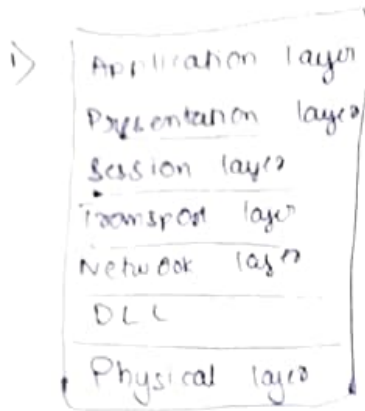 1) Application layer
Presentation layer
Session layer
Transport layer
Network layer
DLL
Physical layer